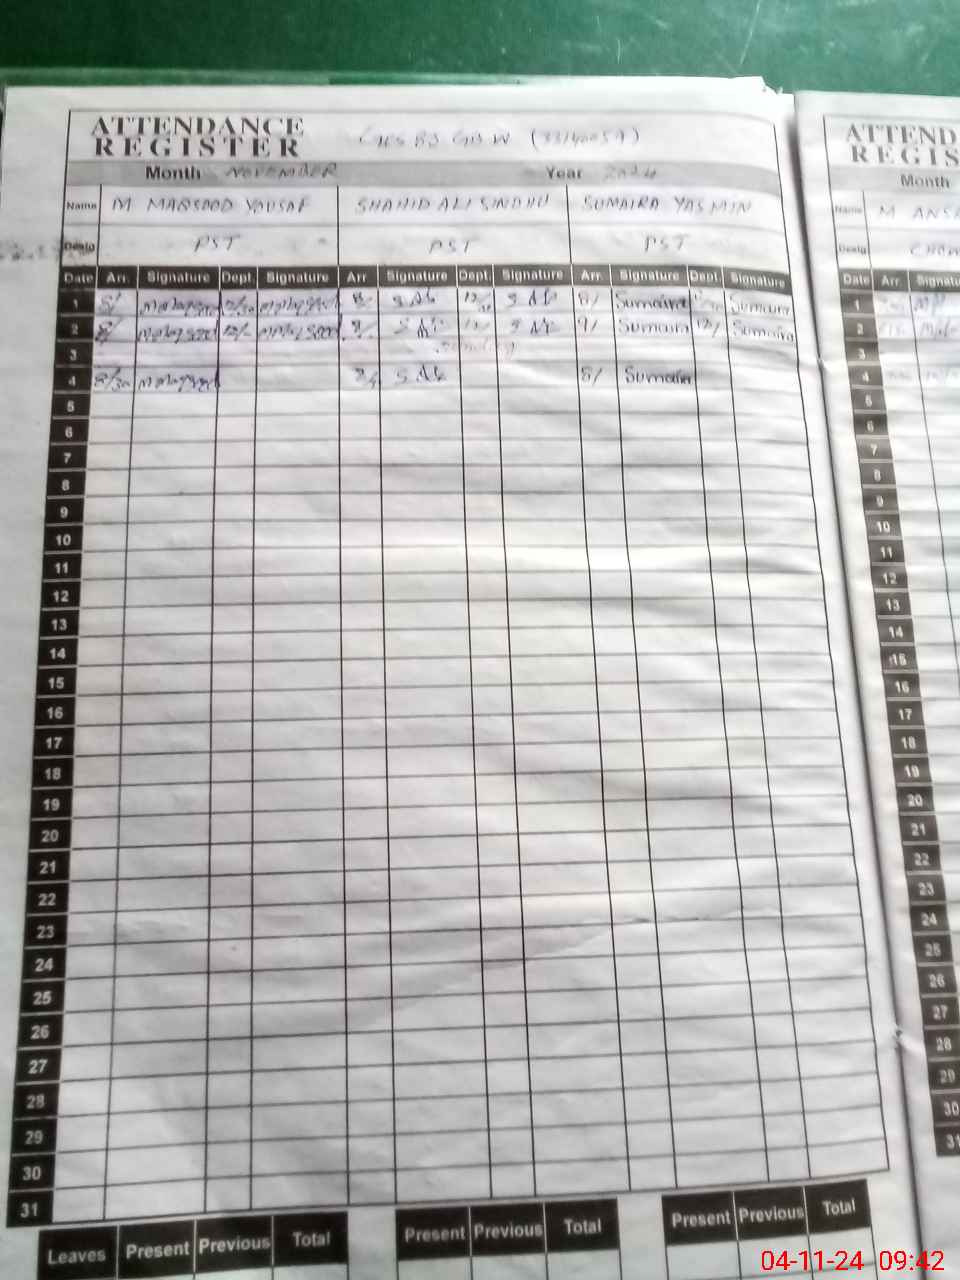 ATTENDANCE REGISTER
GB W (33140059)
Month NOVEMBER Year 2024
Name M MAQSOOD YOUSAF SHAHID ALI SINDHU SUMAIRA YASMIN
Desig PST PST PST
Date Arr. Signature Dept. Signature Arr Signature Dept. Signature Arr. Signature Dept. Signature
1 8/ 8/ 8/ Sumaira Sumaira
2 9/ Sumaira 12/ Sumaira
3 Sunday
4 8/30 8/ Sumaira
5
6
7
8
9
10
11
12
13
14
15
16
17
18
19
20
21
22
23
24
25
26
27
28
29
30
31
Leaves Present Previous Total Present Previous Total Present Previous Total
ATTEND
REGIS
Month
Name M ANSA
Desig
Date Arr Signatu
1
2
3
4
5
6
7
8
9
10
11
12
13
14
15
16
17
18
19
20
21
22
23
24
25
26
27
28
29
30
31
04-11-24 09:42